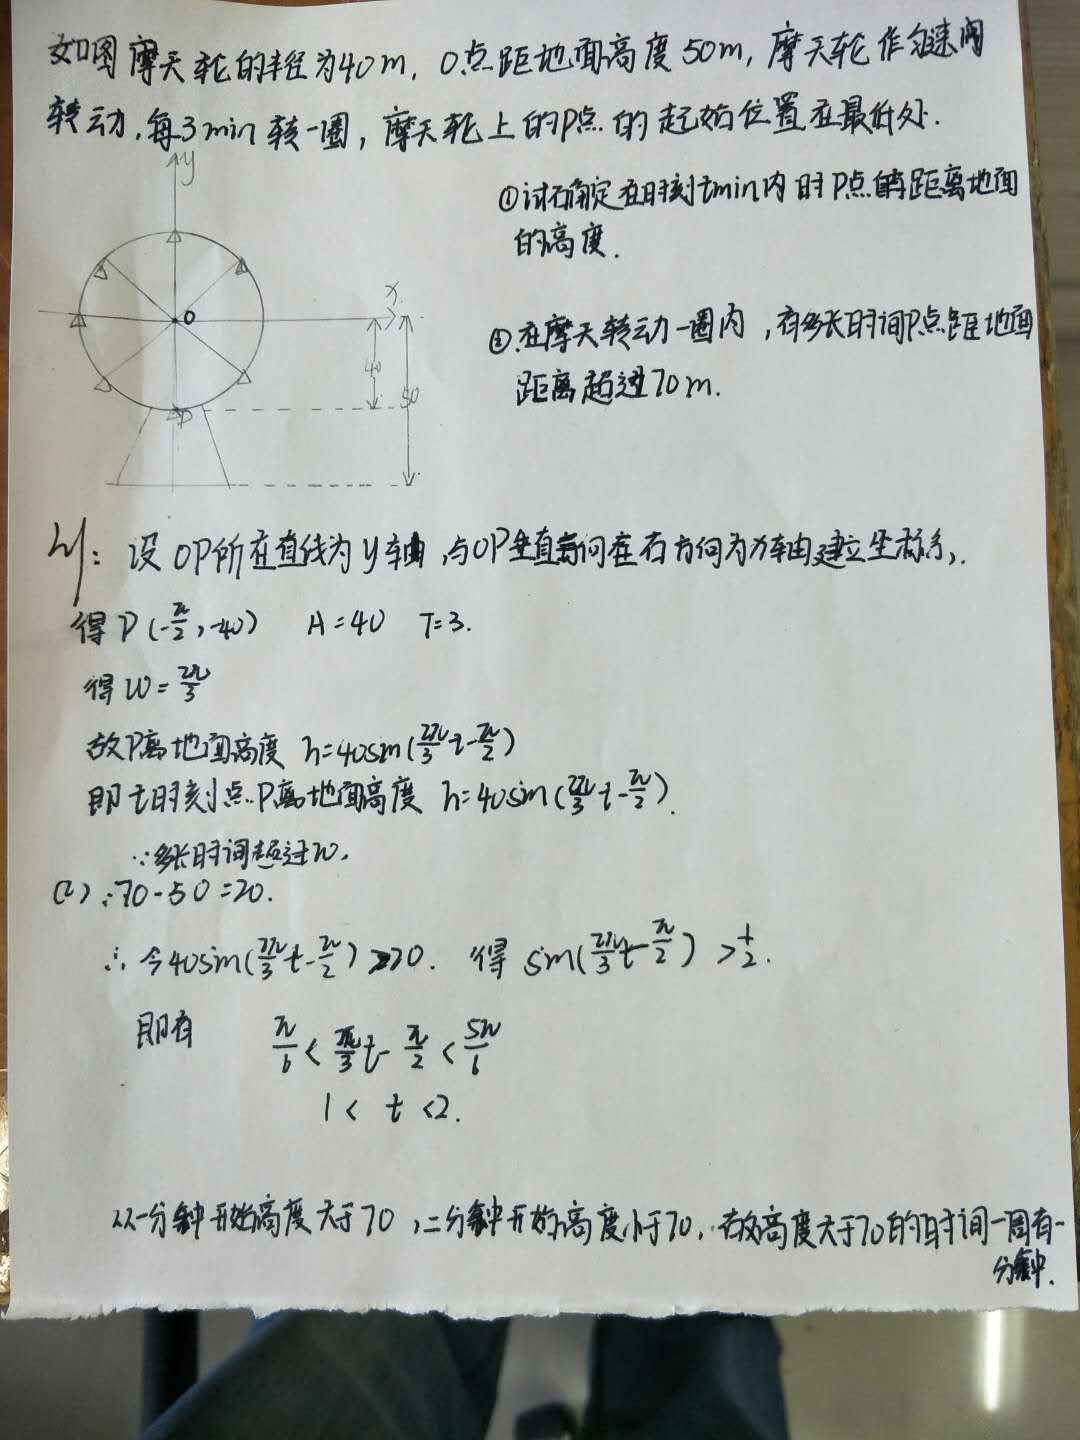 如图摩天轮的半径为40m, O点距地面高度50m, 摩天轮作匀速
转动,每3min转一圈, 摩天轮上的P点的起始位置在最低处.
y
①试确定在时刻tmin内时P点距离地面
的高度.
x
O
②.在摩天转动一圈内,有多长时间P点距地面
距离超过70m.
40
50
P
设OP所在直线为y轴,与OP垂直向在右方向为x轴建立坐标系.
得P(-π/2,-40) A=40 T=3.
得W=2π/3
故P离地面高度 h=40sin(2π/3 t-π/2)
即t时刻点P离地面高度 h=40sin(2π/3 t-π/2).
∵多长时间超过70.
(2)∵70-50=20.
∴令40sin(2π/3 t-π/2)>20. 得 sin(2π/3 t-π/2)>1/2.
即有 π/6<2π/3 t-π/2<5π/6
1<t<2.
从一分钟开始高度大于70,二分钟开始高度小于70,故高度大于70的时间一周有一
分钟.